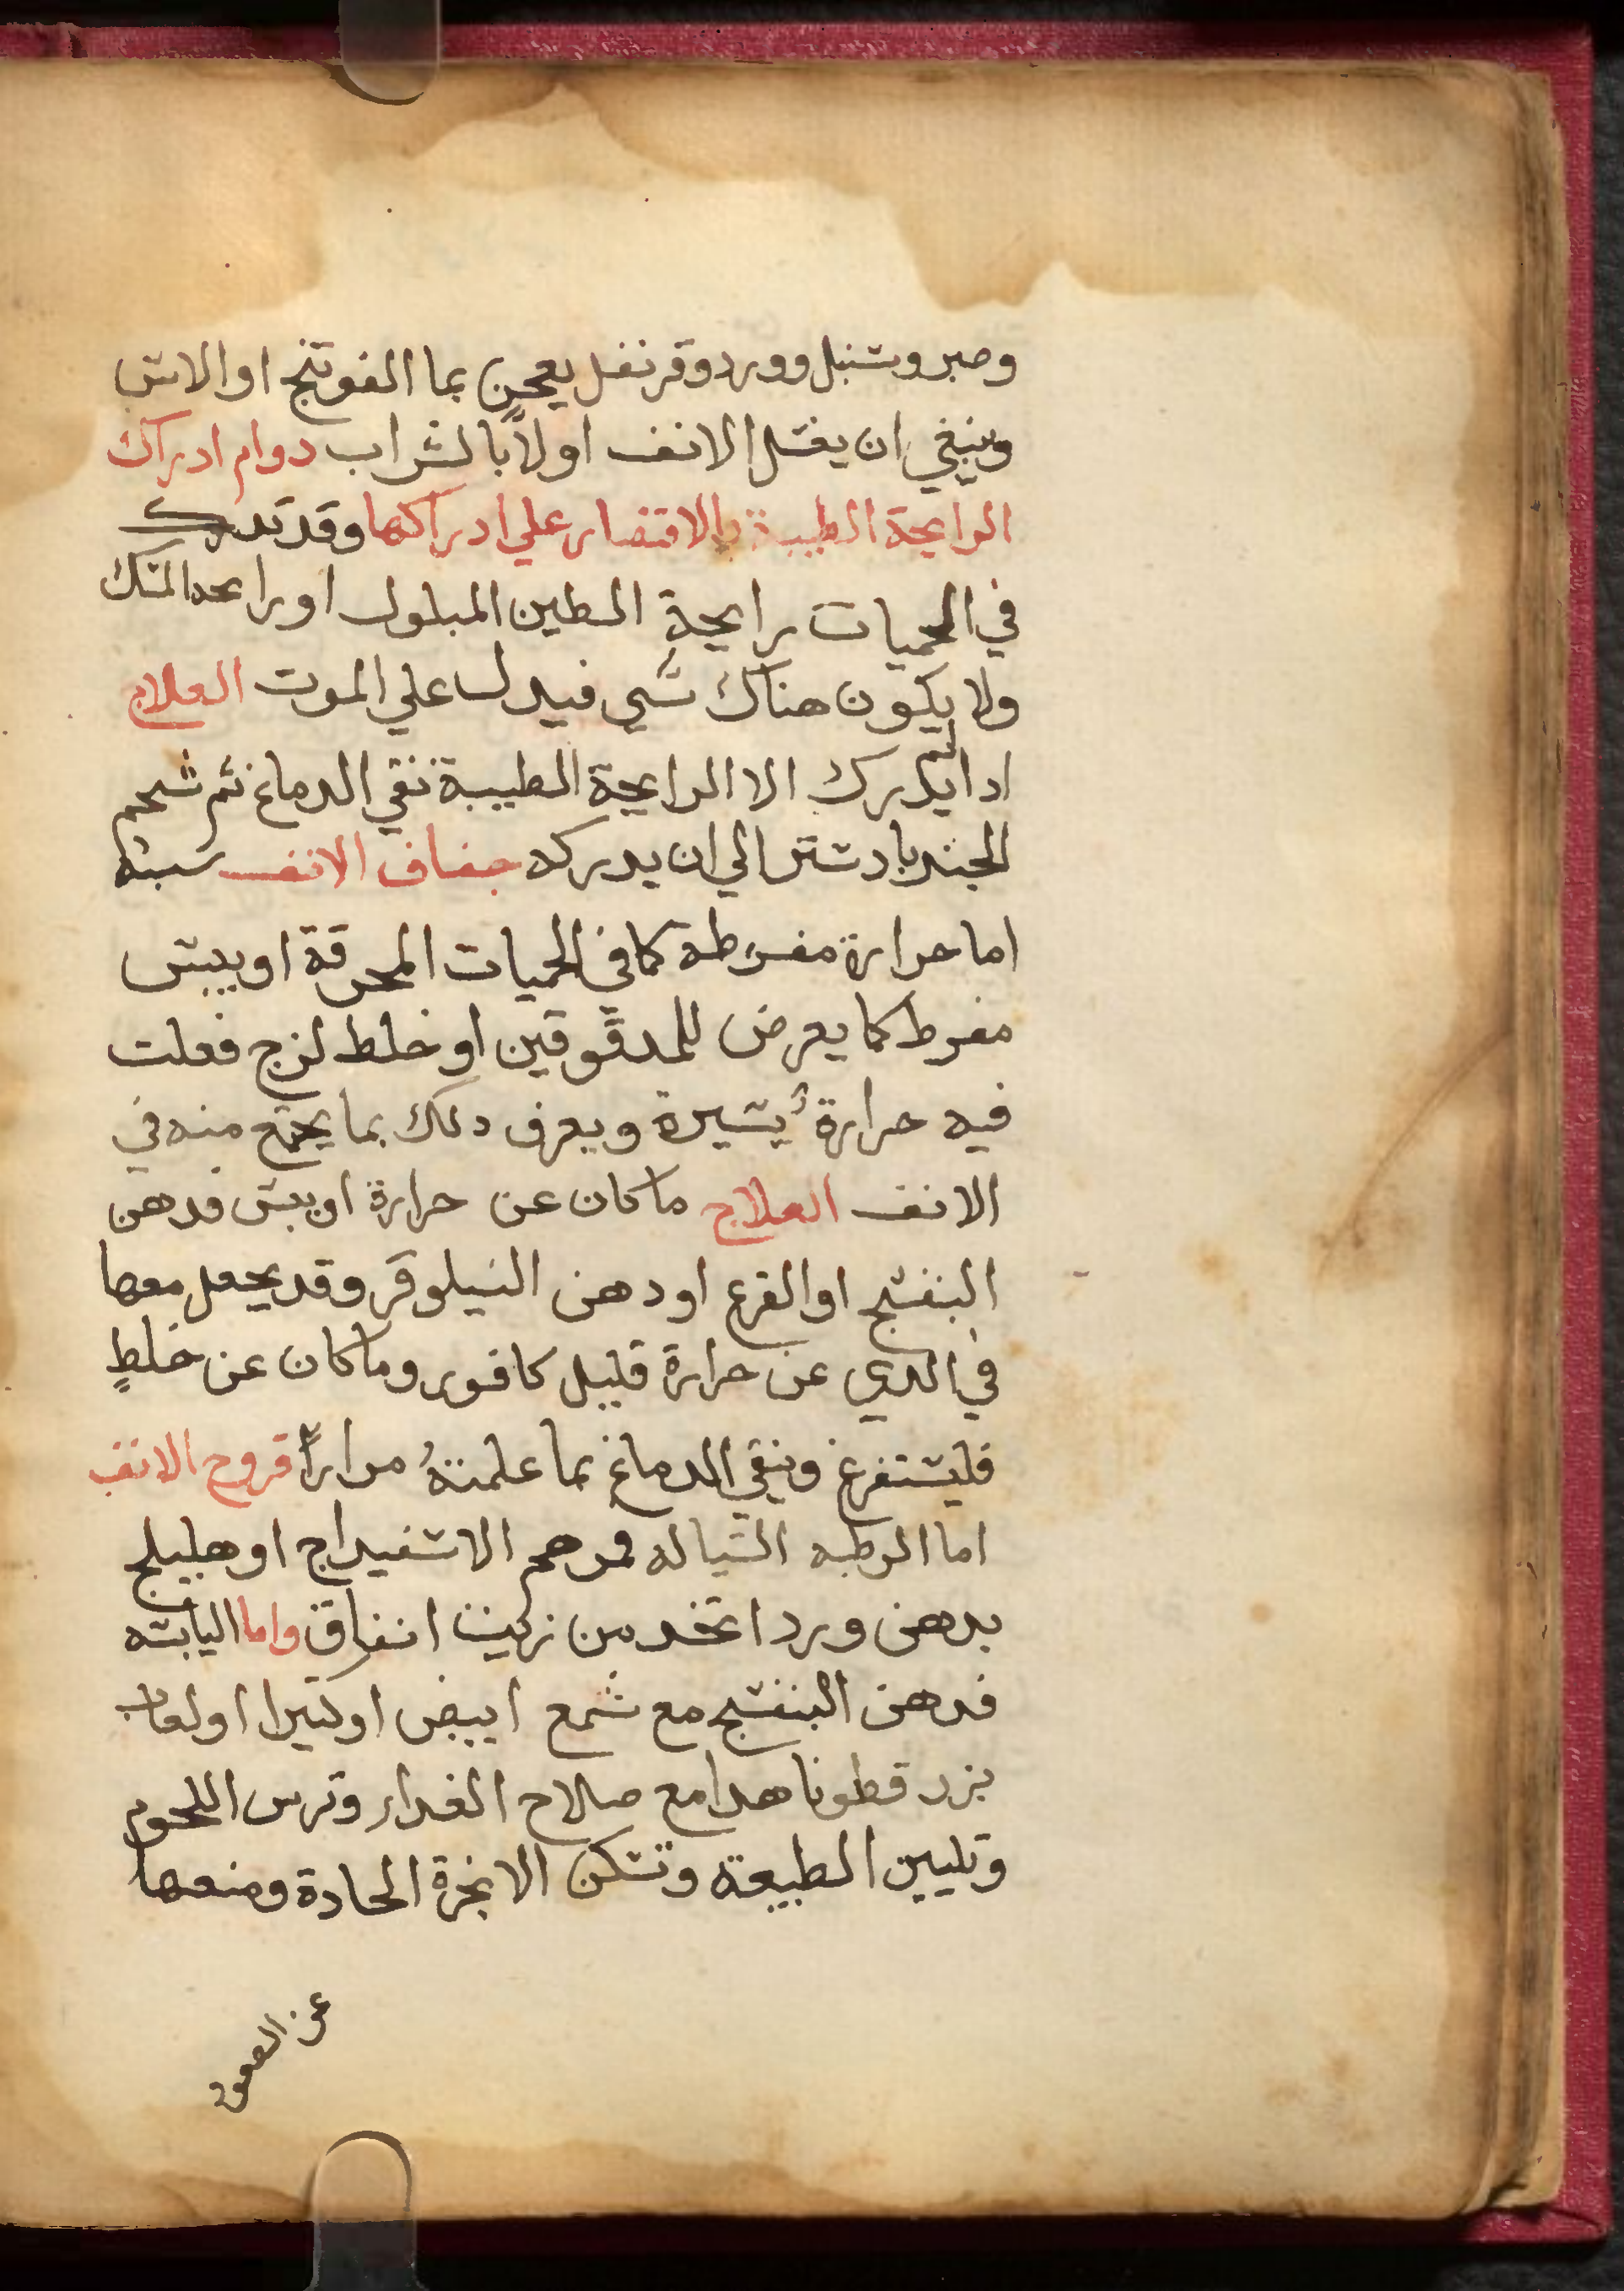 وصبر وسنبل وورد وقرنفل يعجن بما الفوتنج او الاس
وينبغي ان يغسل الانف اولاً بالشراب دوام ادراك
الرايحة الطيبة بالاقتصار علي ادراكها وقد تدرك
في الحميات رايحة الطين المبلول او رايحه المسك
ولا يكون هناك شي فيدل علي الموت العلاج
ادا لم يدرك الا الرايحة الطيبة نقي الدماغ ثم شمم
الجندبادستر الي ان يدركه جفاف الانف سببه
اما حرارة مفرطه كما في الحميات المحرقة او يبس
مفرط كما يعرض للمدقوقين او خلط لزج فعلت
فيه حرارة يسيرة ويعرف دلك بما يجتمع منه في
الانف العلاج ما كان عن حرارة او يبس فدهن
البنفسج او القرع او دهن النيلوفر وقد يجعل معها
في الدي عن حرارة قليل كافور وما كان عن خلطٍ
فليستفرغ وينقي الدماغ بما علمتهُ مراراً قروح الانف
اما الرطبه السياله فمرهم الاسفيداج او هليلج
بدهن ورد اتخد من زيت انفاق واما اليابسه
فدهن البنفسج مع شمع ابيض او كتيرا او لعاب
بزر قطونا هدا مع صلاح الغداء وترك اللحوم
وتليين الطبيعة وتسكن الابخرة الحادة ومنعها
عن الصعود